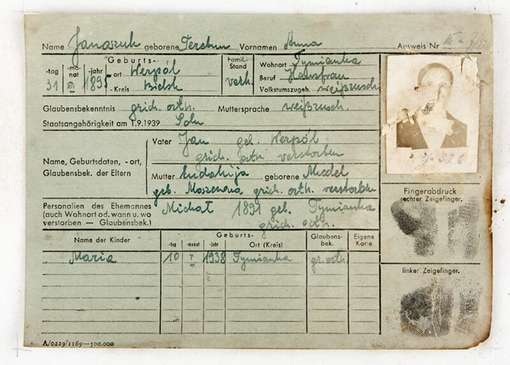 Name Janaszuk geborene Vornamen Anna Ausweis Nr
Geburts-
-tag -mo-nat -jahr -ort Werpol - Kreis Bielsk
31 189
Famil.-Stand verh.
Wohnort Tymianka
Beruf Hausfrau
Volkstumszugeh. weißrusch
Glaubensbekenntnis grich. orth. Muttersprache weißrusch
Staatsangehörigkeit am 1.9.1939 Poln
Name, Geburtsdaten, - ort, Glaubensbek. der Eltern
Vater Jan geb. Werpol
grich. orth. verstorben
Mutter geborene
geb. grich. orth. verstorben
Personalien des Ehemannes (auch Wohnort od. wann u. wo verstorben — Glaubensbek.)
Michał 1891 geb. Tymianka
grich. orth.
Name der Kinder Geburts- -tag -monat -jahr Ort (Kreis) Glaubens-bek. Eigene Karte
Maria 10 1938 Tymianka gr. orth.
Fingerabdruck
rechter Zeigefinger.
linker Zeigefinger.
A/0229/1169—500.000